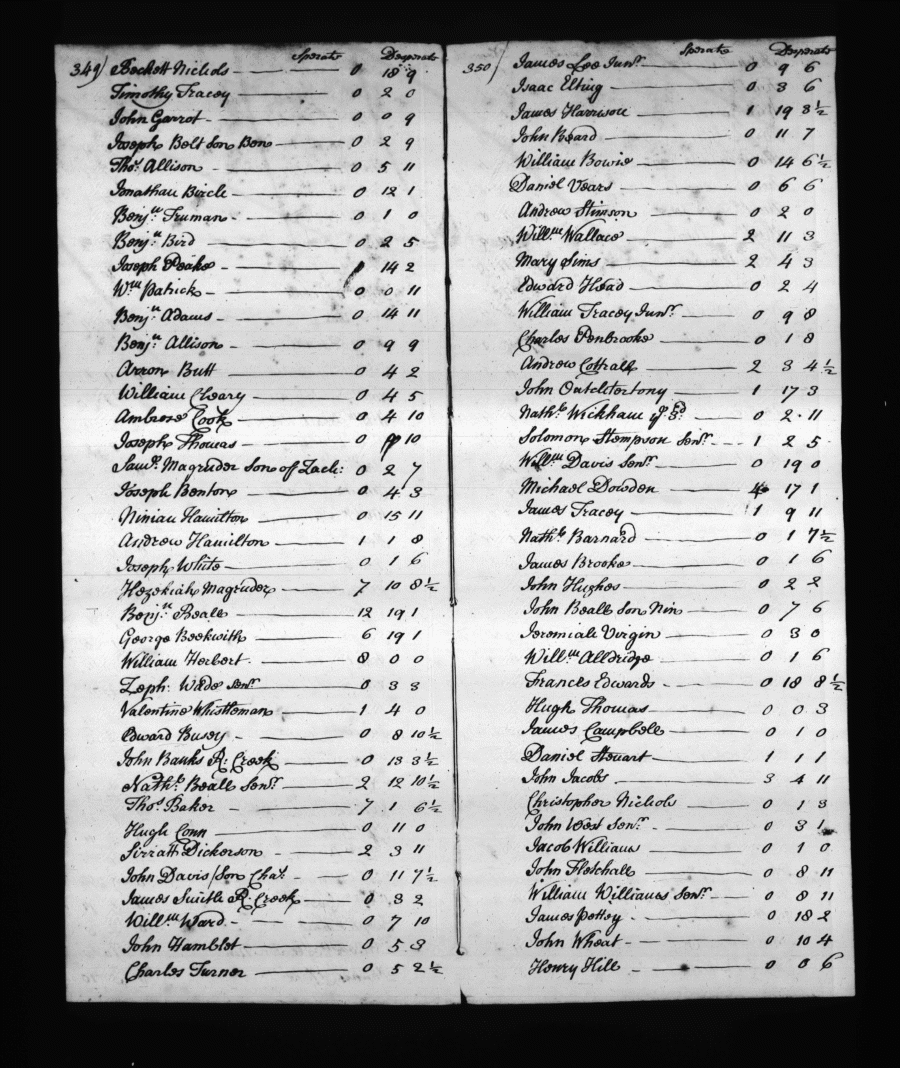 Sperate Desperate
349/ Beckett Nichols — 0 18 9
Timothy Tracey — 0 2 0
John Garrot — 0 0 9
Joseph Belt Son Ben — 0 2 9
Thos. Allison — 0 5 11
Jonathan Bircle — 0 12 1
Benjn. Truman — 0 1 0
Benjn. Bird — 0 2 5
Joseph Peake — 1 14 2
Wm Patrick — 0 0 11
Benjn. Adams — 0 14 11
Benjn. Allison — 0 9 9
Arron Butt — 0 4 2
William Cleary — 0 4 5
Ambrose Cook — 0 4 10
Joseph Thomas — 0 10
Saml. Magruder Son of Zach: 0 2 7
Joseph Benton — 0 4 3
Ninian Hamilton — 0 15 11
Andrew Hamilton — 1 1 8
Joseph White — 0 1 6
Hezekiah Magruder — 7 10 8½
Benjn. Beall — 12 19 1
George Beckwith — 6 19 1
William Herbert — 8 0 0
Zeph: Wade Senr. — 0 3 3
Valentine Whistleman — 1 4 0
Edward Busey — 0 8 10½
John Banks R: Creek — 0 13 3½
Nathl. Beall Senr. — 2 12 10½
Thos. Baker — 7 1 6½
Hugh Conn — 0 11 0
Sirratt Dickerson — 2 3 11
John Davis (Son Chas. — 0 11 7½
James Smith R: Creek — 0 3 2
Willm. Ward — 0 7 10
John Hamblet — 0 5 3
Charles Turner — 0 5 2½
Sperate Desperate
350/ James Lee Junr. — 0 9 6
Isaac Elting — 0 3 6
James Harrison — 1 19 3½
John Beard — 0 11 7
William Bowie — 0 14 6½
Daniel Vears — 0 6 6
Andrew Stinson — 0 2 0
Willm. Wallace — 2 11 3
Mary Sims — 2 4 3
Edward Head — 0 2 4
William Tracey Junr. — 0 9 8
Charles Penbrooke — 0 1 8
Andrew Cottrall — 2 3 4½
John — 1 17 3
Nathl. Wickham — 0 2 11
Solomon Stempson Senr. — 1 2 5
Willm. Davis Senr. — 0 19 0
Michael Dowden — 4 17 1
James Tracey — 1 9 11
Nathl. Barnard — 0 1 7½
James Brooke — 0 1 6
John Hughes — 0 2 2
John Beall Son Nin — 0 7 6
Jeremiah Virgin — 0 3 0
Willm. Alldridge — 0 1 6
Frances Edwards — 0 18 8½
Hugh Thomas — 0 0 3
James Campbell — 0 1 0
Daniel Stewart — 1 1 1
John Jacobs — 3 4 11
Christopher Nichols — 0 1 3
John West Senr. — 0 3 1
Jacob Williams — 0 1 0
John Fletchall — 0 8 11
William Williams Senr. — 0 8 11
James Pottey — 0 18 2
John Wheat — 0 10 4
Henry Hill — 0 0 6